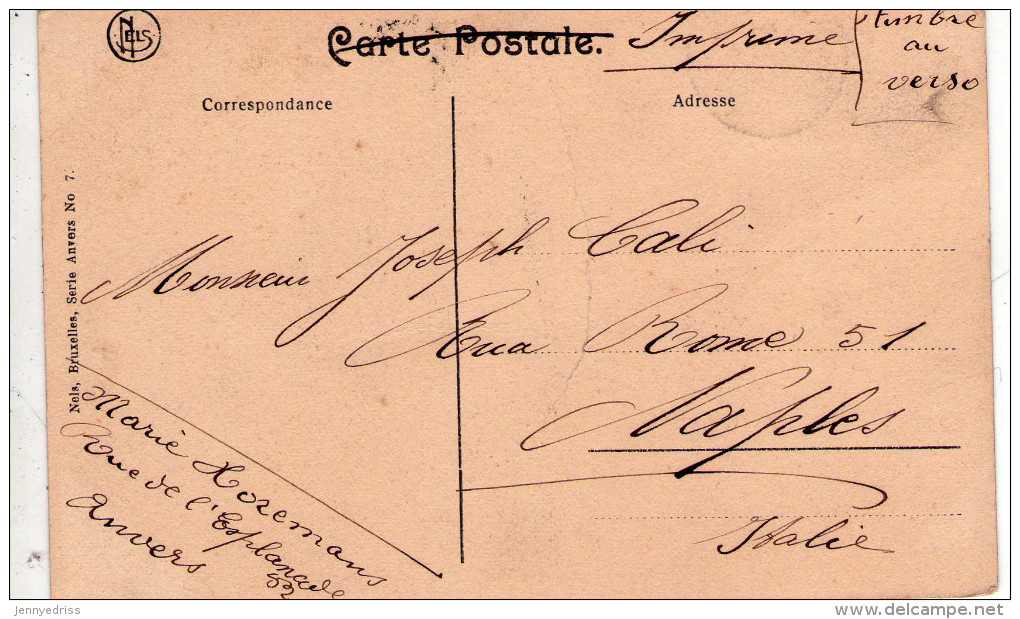 NELS
Carte Postale.
Imprimé
timbre
au
verso
Correspondance
Adresse
Nels, Bruxelles, Serie Anvers No 7.
Monsieur Joseph Cali
Rua Rome 51
Naples
Italie
Marie Horemans
Rue de l'Esplanade
Anvers
jennyedriss
www.delcampe.net